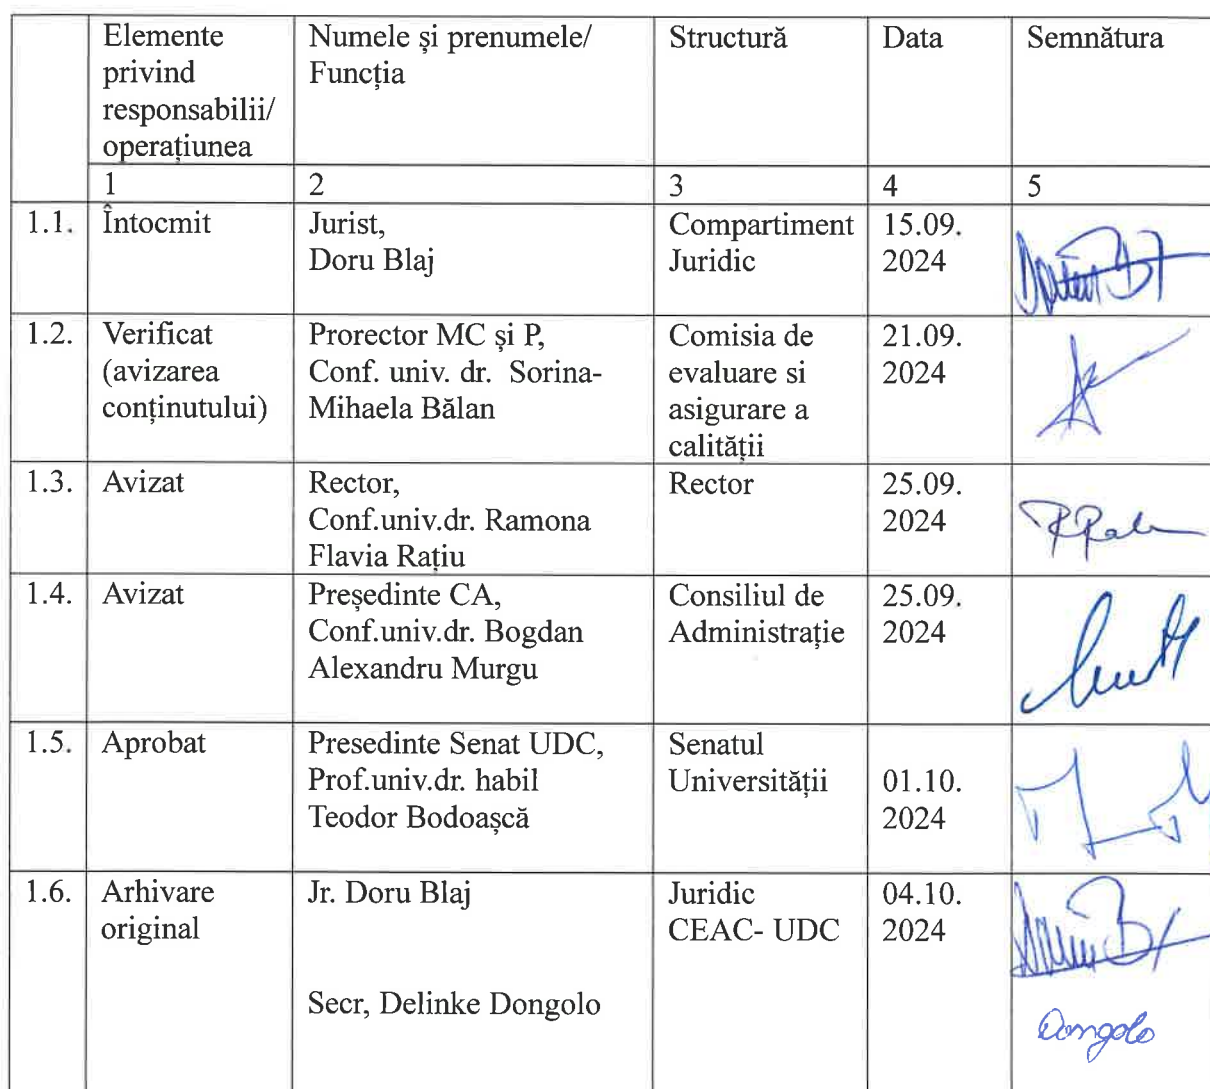 Elemente privind responsabilii/ operațiunea
Numele și prenumele/ Funcția
Structură
Data
Semnătura
1 2 3 4 5
1.1. Întocmit
Jurist,
Doru Blaj
Compartiment
Juridic
15.09.
2024
1.2. Verificat
(avizarea
conținutului)
Prorector MC și P,
Conf. univ. dr. Sorina-
Mihaela Bălan
Comisia de
evaluare si
asigurare a
calității
21.09.
2024
1.3. Avizat
Rector,
Conf.univ.dr. Ramona
Flavia Rațiu
Rector
25.09.
2024
1.4. Avizat
Președinte CA,
Conf.univ.dr. Bogdan
Alexandru Murgu
Consiliul de
Administrație
25.09.
2024
1.5. Aprobat
Presedinte Senat UDC,
Prof.univ.dr. habil
Teodor Bodoașcă
Senatul
Universității
01.10.
2024
1.6. Arhivare
original
Jr. Doru Blaj
Secr, Delinke Dongolo
Juridic
CEAC- UDC
04.10.
2024
Dongolo